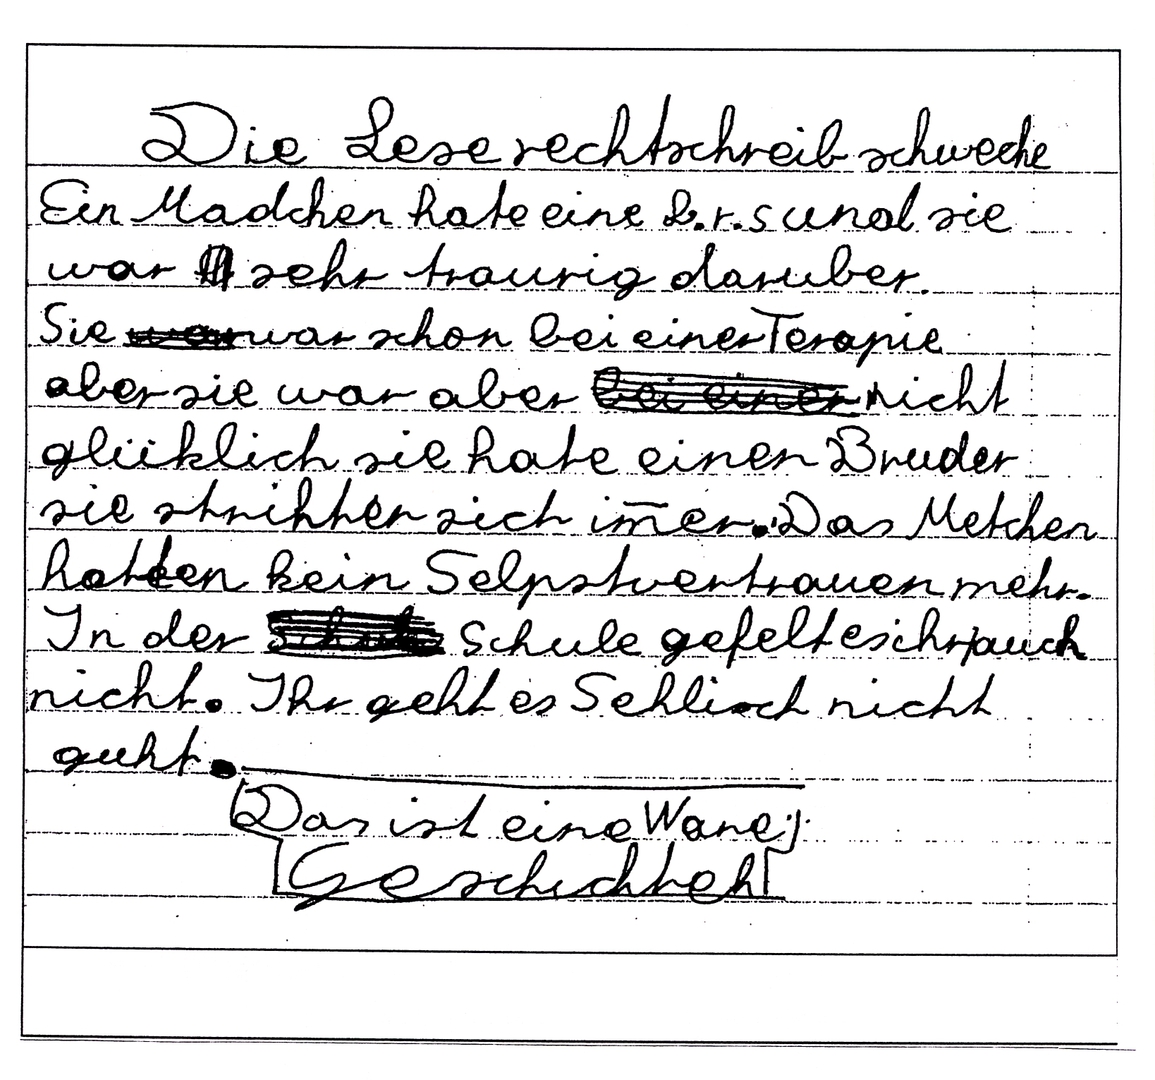 Die Leserechtschreibschweche
Ein Madchen hate eine L.r.s und sie
war sehr traurig daruber.
Sie war schon bei einer Terapie
aber sie war aber nicht
glüklich sie hate einen Bruder
sie strihten sich im̄er. Das Metchen
hatten kein Selpstvertrauen mehr.
In der Schule gefelt es ihr auch
nicht. Ihr geht es Sehlisch nicht
guht.
Das ist eine Wane
Geschichteh